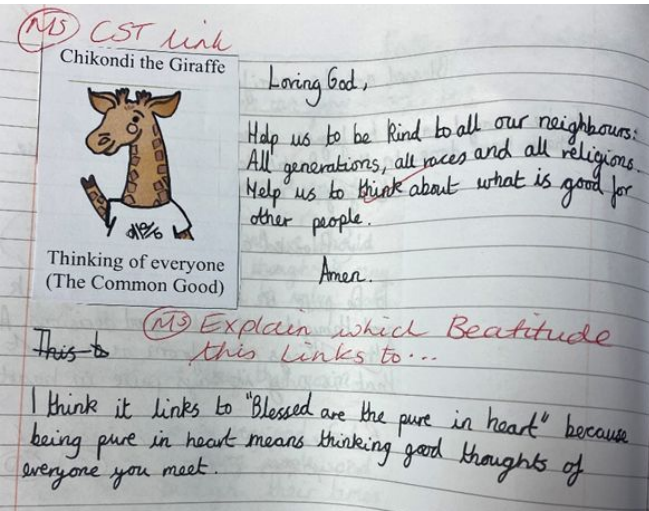 MS CST link
Chikondi the Giraffe
Thinking of everyone
(The Common Good)
Loving God,
Help us to be kind to all our neighbours:
All generations, all races and all religions.
Help us to think about what is good for
other people.
Amen.
MS Explain which Beatitude
this links to...
This to
I think it links to "Blessed are the pure in heart" because
being pure in heart means thinking good thoughts of
everyone you meet.